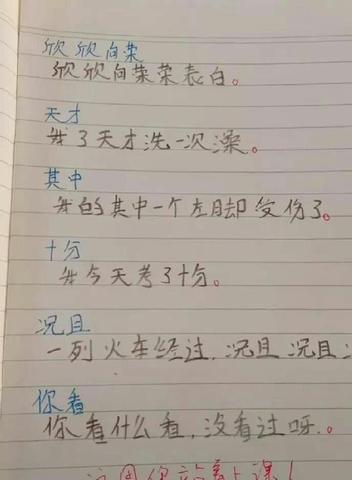 欣欣向荣
欣欣向荣荣表白。
天才
我3天才洗一次澡。
其中
我的其中一个左脚受伤了。
十分
我今天考了十分。
况且
一列火车经过,况且况且
你看
你看什么看,没看过呀。